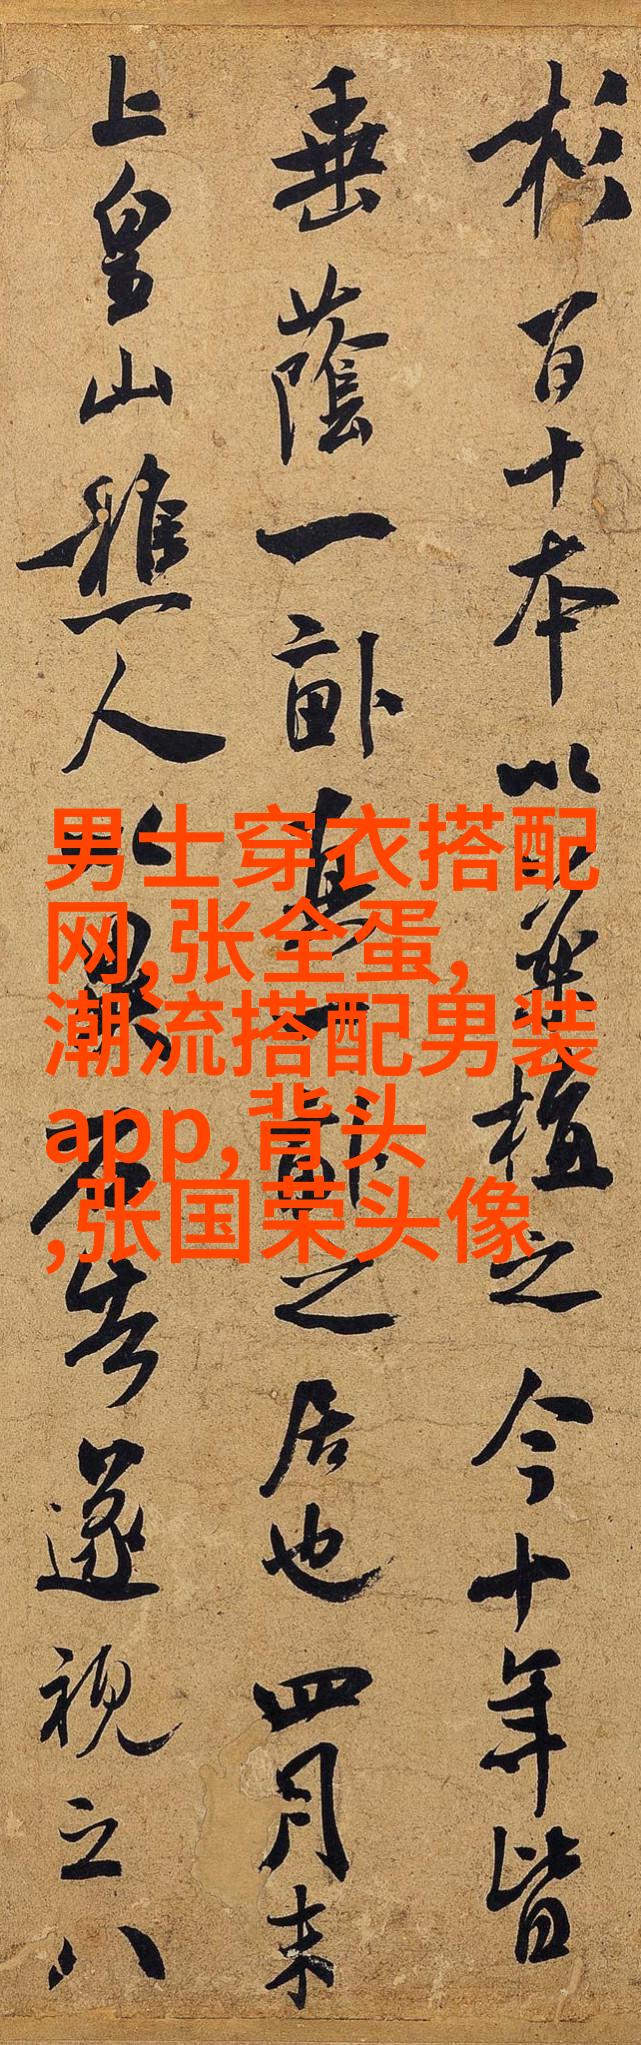 杉百十本以藥植之今十年皆
垂蔭一畝真一畝之居也四月末
上皇山樵人以異石告遂視之八
男士穿衣搭配
网,张全蛋,
潮流搭配男装
app,背头
,张国荣头像